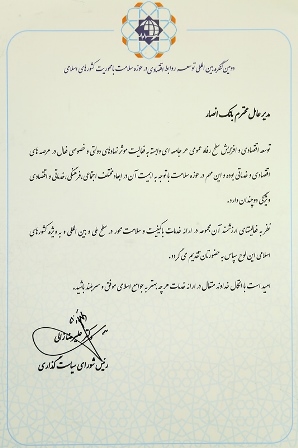 دومین کنگره بین المللی توسعه روابط اقتصادی در حوزه سلامت با محوریت کشورهای اسلامی
مدیر عامل محترم بانک انصار
توسعه اقتصادی و افزایش سطح رفاه عمومی هر جامعه ای وابسته به فعالیت موثر نهادهای دولتی و خصوصی فعال در عرصه های
اقتصادی و خدماتی بوده و این مهم در حوزه سلامت با توجه به اهمیت آن در ابعاد مختلف اجتماعی، فرهنگی، خدماتی و اقتصادی
ویژگی دو چندان دارد.
نظر به فعالیتهای ارزشمند آن مجموعه در ارائه خدمات با کیفیت و سلامت محور در سطح ملی و بین المللی و به ویژه کشورهای
اسلامی این لوح سپاس به حضورتان تقدیم می گردد.
امید است با اتکال خداوند متعال در ارائه خدمات هر چه بهتر به جوامع اسلامی موفق و سربلند باشید.
دکتر علیرضا
رئیس شورای سیاست گذاری